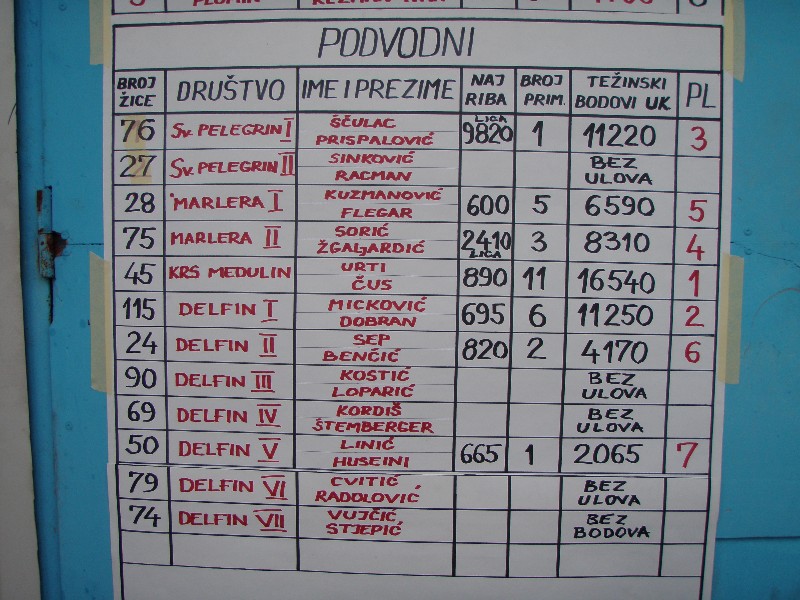 PODVODNI
BROJ ŽICE DRUŠTVO IME I PREZIME NAJ RIBA BROJ PRIM. TEŽINSKI BODOVI UK. PL
76 Sv. PELEGRIN I ŠČULAC PRISPALOVIĆ LICA 9820 1 11220 3
27 Sv. PELEGRIN II SINKOVIĆ RACMAN BEZ ULOVA
28 MARLERA I KUZMANOVIĆ FLEGAR 600 5 6590 5
75 MARLERA II SORIĆ ŽGALJARDIĆ 2410 LICA 3 8310 4
45 KRŠ MEDULIN URTI ČUS 890 11 16540 1
115 DELFIN I MICKOVIĆ DOBRAN 695 6 11250 2
24 DELFIN II SEP BENČIĆ 820 2 4170 6
90 DELFIN III KOSTIĆ LOPARIĆ BEZ ULOVA
69 DELFIN IV KORDIŠ ŠTEMBERGER BEZ ULOVA
50 DELFIN V LINIĆ HUSEINI 665 1 2065 7
79 DELFIN VI CVITIĆ RADOLOVIĆ BEZ ULOVA
74 DELFIN VII VUJČIĆ STJEPIĆ BEZ BODOVA